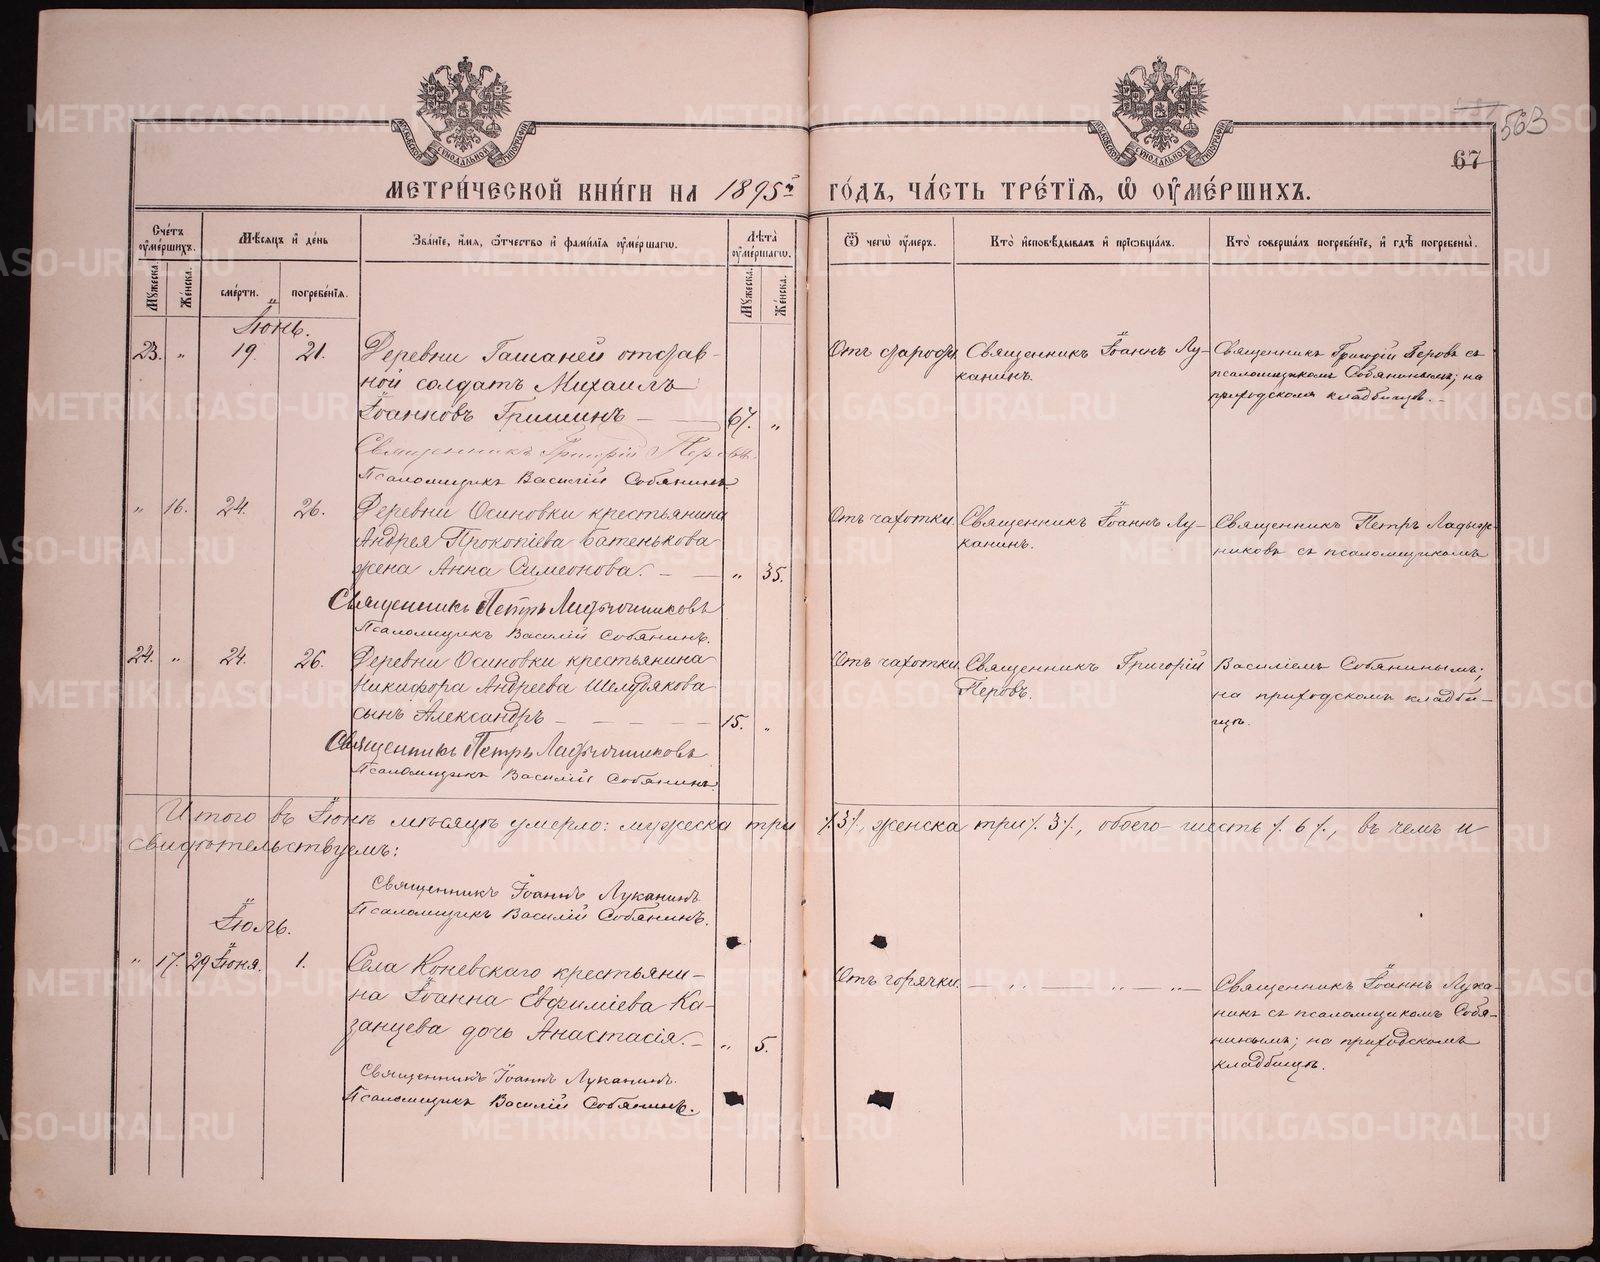 МЕТРИ́ЧЕСКОЙ КНИ́ГИ НА 1895й ГО́ДЪ, ЧА́СТЬ ТРЕ́ТЇЯ, Ѽ ОУМЕ́РШИХЪ.
563
67
Сче́тъ оуме́ршихъ.
Мѣ́сяцъ и де́нь
Зва́нїе, и́мя, ѻ́тчество и фами́лїя оуме́ршагѡ.
Лѣ́та оуме́ршагѡ.
Ѿ чегѡ̀ оу́меръ.
Кто̀ и҆сповѣ́дывалъ и҆ прїѡбща́лъ.
Кто̀ соверша́лъ погребе́нїе, и҆ гдѣ̀ погребены̀.
Му́жеска.
Же́нска.
сме́рти.
погребе́нїя.
Му́жеска.
Же́нска.
Іюнь.
23. " 19. 21. Деревни Гашаней отстав-
ной солдатъ Михаилъ
Іоанновъ Гришинъ — 67. "
Священникъ Григорій Перовъ.
Псаломщикъ Василій Собянинъ
Отъ старости. Священникъ Іоаннъ Лу-
канинъ.
Священникъ Григорій Перовъ съ
псаломщикомъ Собянинымъ; на
приходскомъ кладбищѣ.
" 16. 24. 26. Деревни Осиновки крестьянина
Андрея Прокопіева Батенькова
жена Анна Симеонова. — " 35.
Священникъ Петръ
Псаломщикъ Василій Собянинъ.
Отъ чахотки. Священникъ Іоаннъ Лу-
канинъ.
Священникъ Петръ Ладыж-
никовъ съ псаломщикомъ
24. " 24. 26. Деревни Осиновки крестьянина
Никифора Андреева Шелудякова
сынъ Александръ — 15. "
Священникъ Петръ
Псаломщикъ Василій Собянинъ.
Отъ чахотки. Священникъ Григорій
Перовъ.
Василіемъ Собянинымъ;
на приходскомъ кладби-
щѣ.
Итого въ Іюнѣ мѣсяцѣ умерло: мужеска три /.3/., женска три /.3/., обоего шесть /.6/., въ чемъ и
свидѣтельствуемъ:
Священникъ Іоаннъ Луканинъ.
Псаломщикъ Василій Собянинъ.
Іюль.
" 17. 29 Іюня. 1. Села Коневскаго крестьяни-
на Іоанна Евфиміева Ка-
занцева дочь Анастасія. — " 5.
Священникъ Іоаннъ Луканинъ.
Псаломщикъ Василій Собянинъ.
Отъ горячки. — " — " — " —
Священникъ Іоаннъ Лука-
нинъ съ псаломщикомъ Собя-
нинымъ; на приходскомъ
кладбищѣ.
METRIKI.GASO-URAL.RU